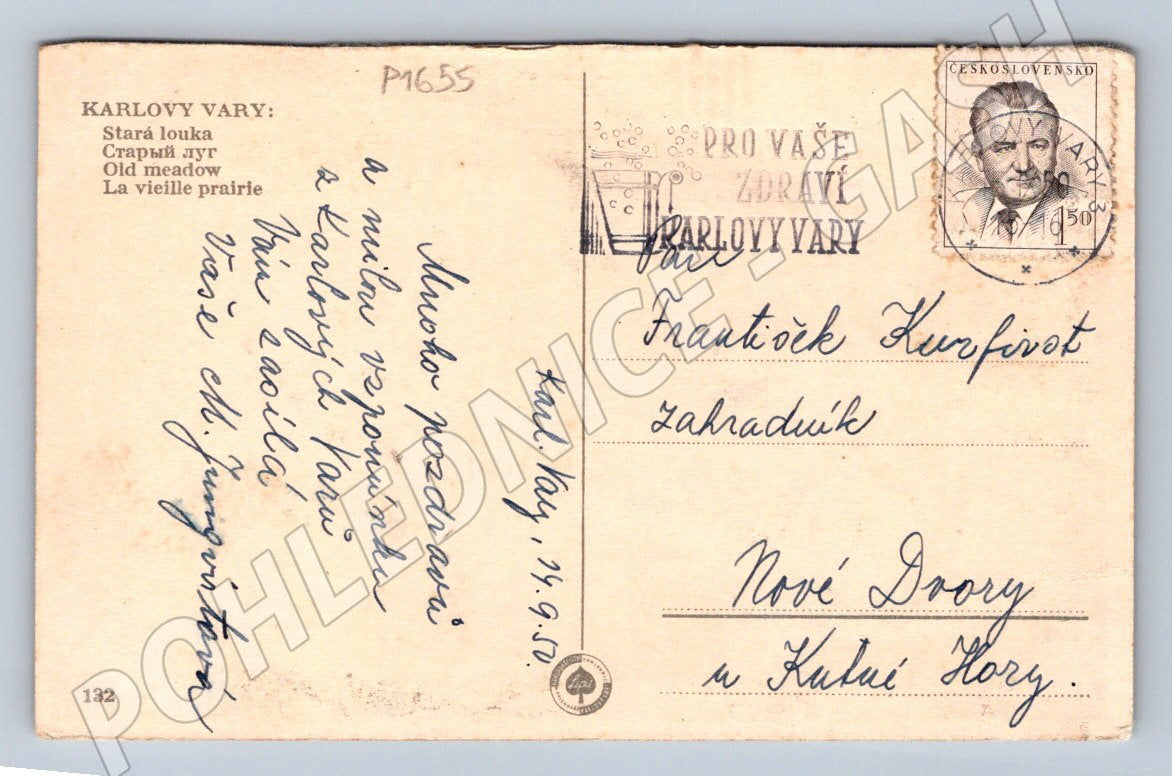 P1655
KARLOVY VARY:
Stará louka
Старый луг
Old meadow
La vieille prairie
Karl. Vary, 14.9.50.
Mnoho pozdravů
a milou vzpomínku
z Karlových Varů
Vám zasílá
Vaše M. Jungvirtová
132
PRO VAŠE
ZDRAVÍ
KARLOVY VARY
ČESKOSLOVENSKO
1 50
KARLOVY VARY 3
Pan
František Kurfirst
zahradník
Nové Dvory
u Kutné Hory.
POHLEDNICE - GASH